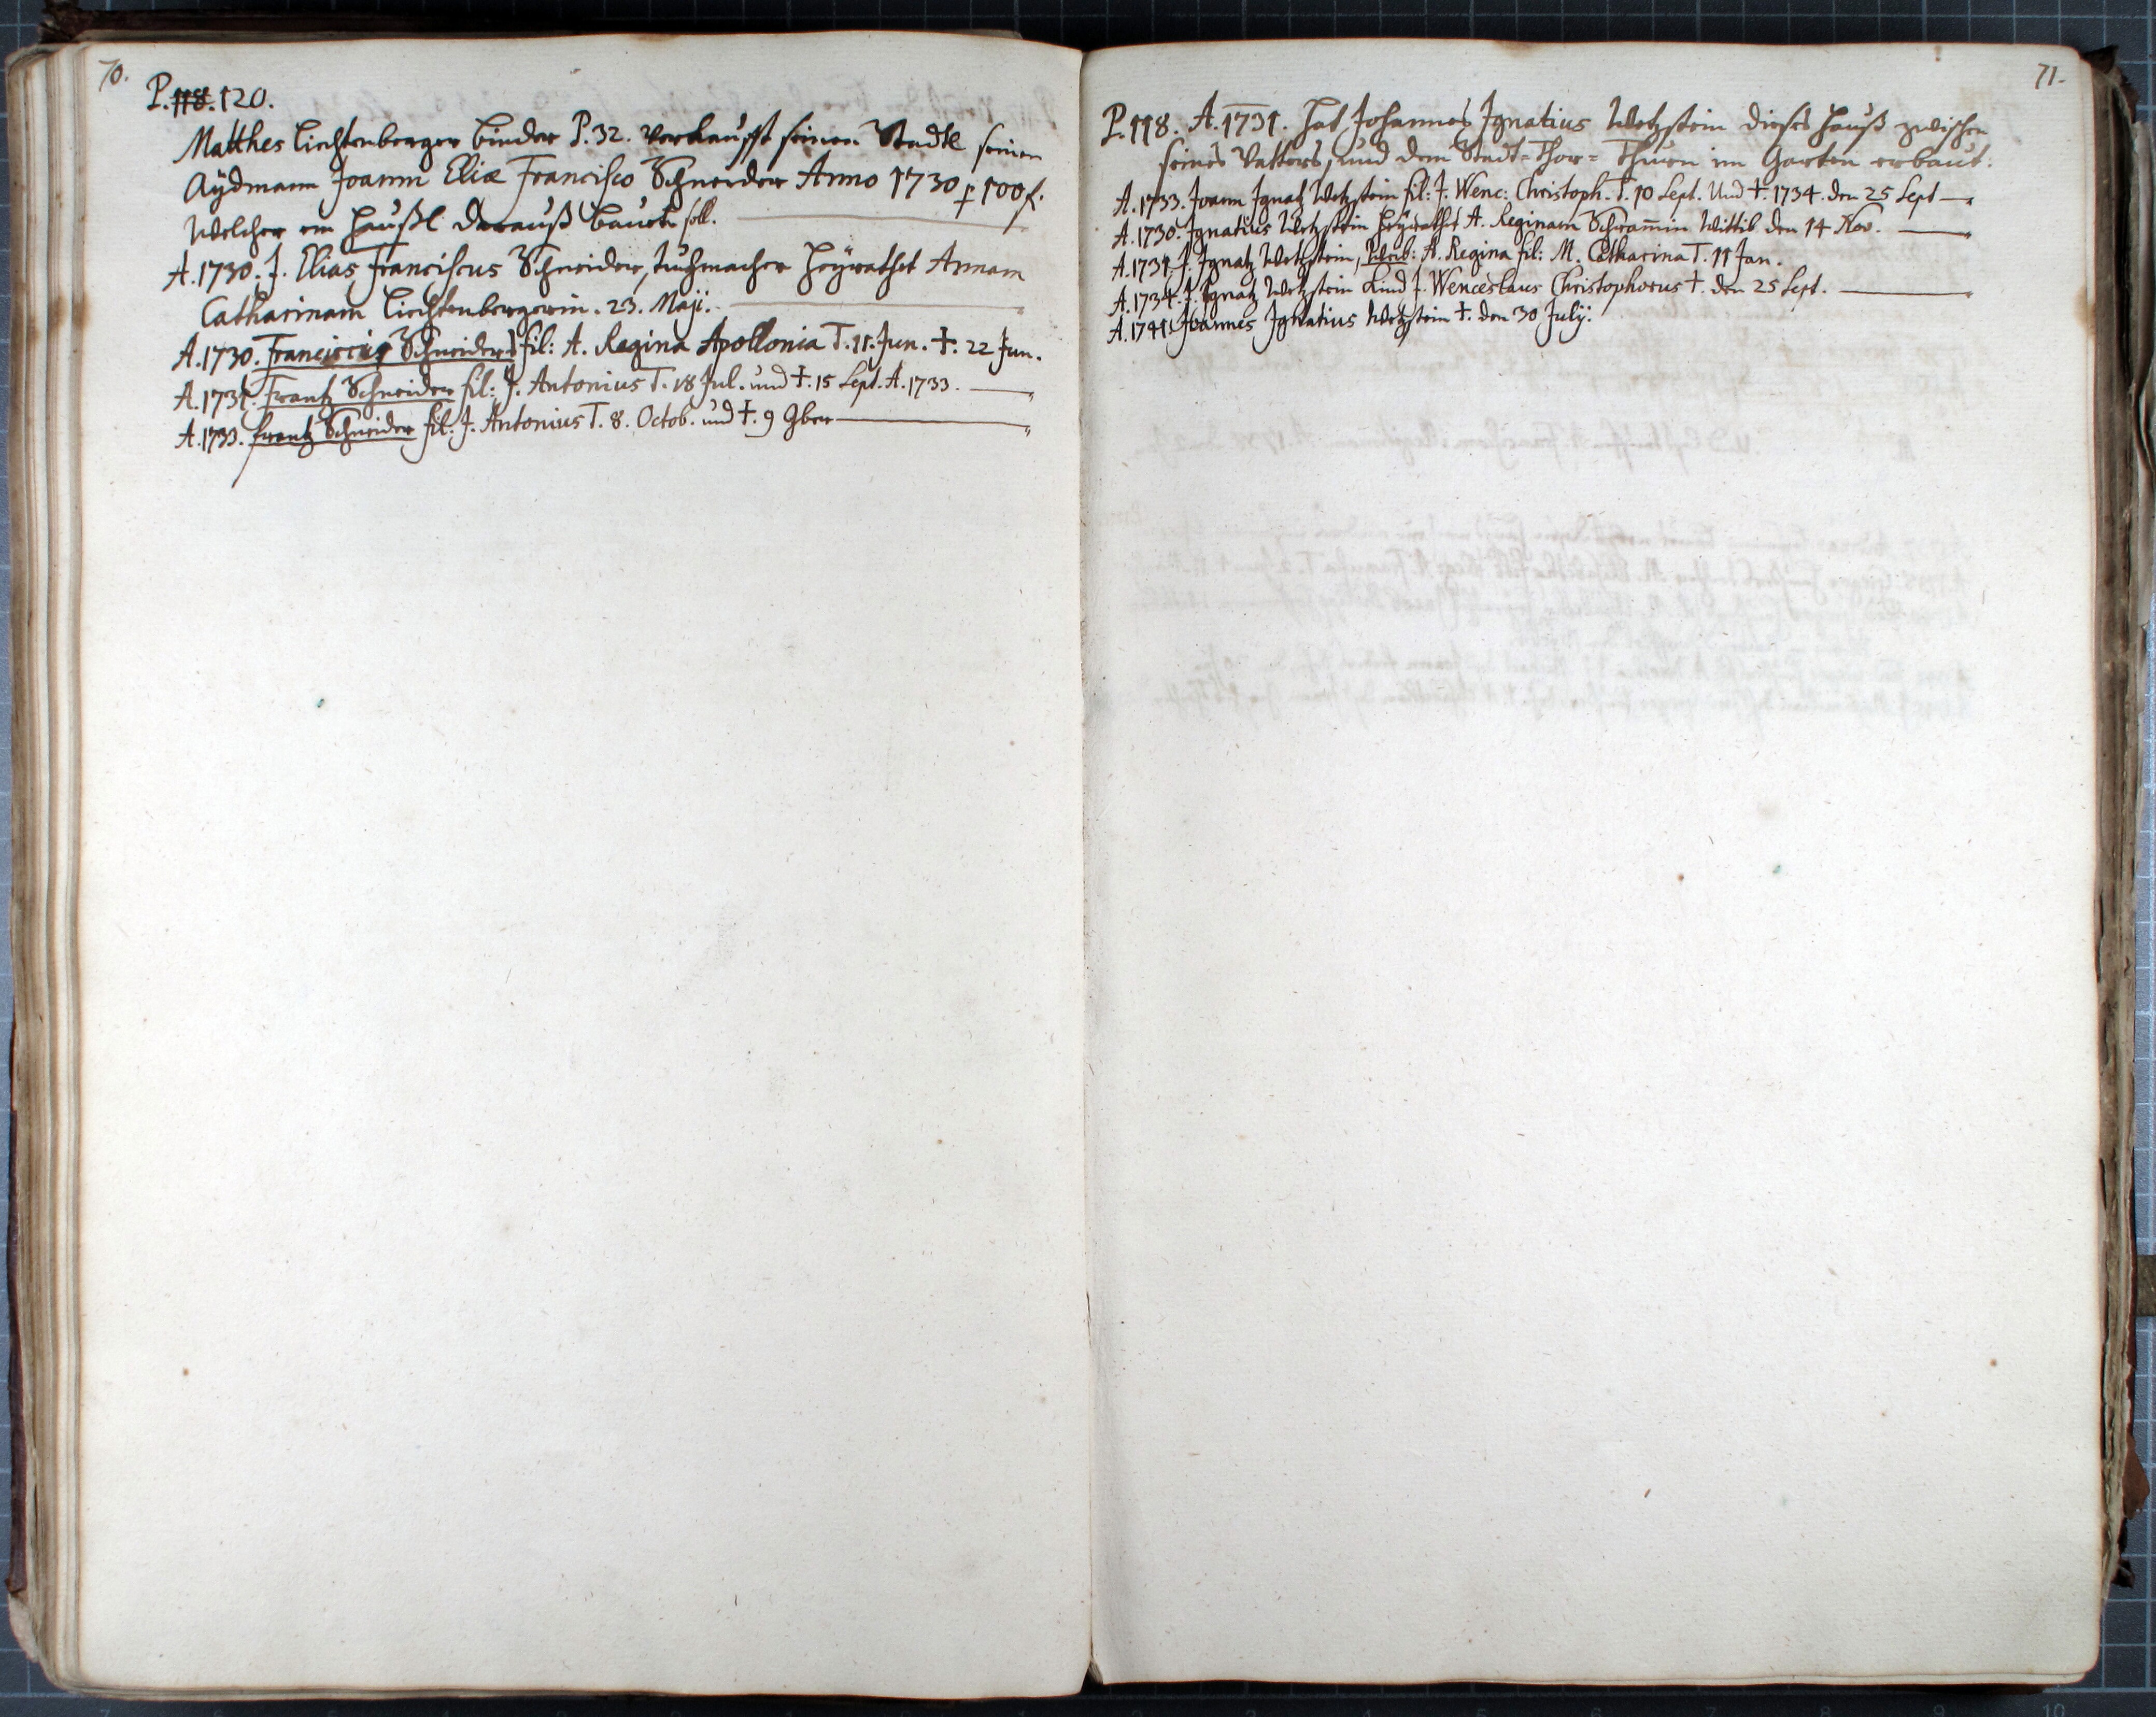 70.
P. 118. 120.
Matthes Liechtenberger binder P. 32. verkaufft seinen Stadtl seinen
Aÿdmann Joanni Eliæ Francisco Schneider Anno 1730 p 100 f.
welcher ein Häußl darauß bauen soll.
A. 1730. J. Elias Franciscus Schneider, tuchmacher heÿrathet Annam
Catharinam Liechtenbergerin. 23. Maji.
A. 1730. Franciscus Schneider fil: A. Regina Apollonia T. 11. Jun. †. 22 Jun.
A. 1731. Frantz Schneider fil: J. Antonius T. 18 Jul. und †. 15 Sept. A. 1733.
A. 1733. Frantz Schneider fil: J. Antonius T. 8. Octob. und †. 9 9ber
71.
P. 118. A. 1731. hat Johannes Ignatius Wetzstein dieses Hauß zwischen
seines Vatters, und dem Stadt-Thor-Thurn im Garten erbaut.
A. 1733. Joann Ignatz Wetzstein fil: J. Wenc: Christoph. T. 10 Sept. Und †. 1734. den 25 Sept
A. 1730. Ignatius Wetzstein heÿrathet A. Reginam Schram̄in Wittib den 14 Nov.
A. 1731. J. Ignatz Wetzstein, Weib: A. Regina fil: M. Catharina T. 11 Jan.
A. 1734. J. Ignatz Wetzstein Kind J. Wenceslaus Christophorus †. den 25 Sept.
A. 1741. Joannes Ignatius Wetzstein †. den 30 Julÿ.